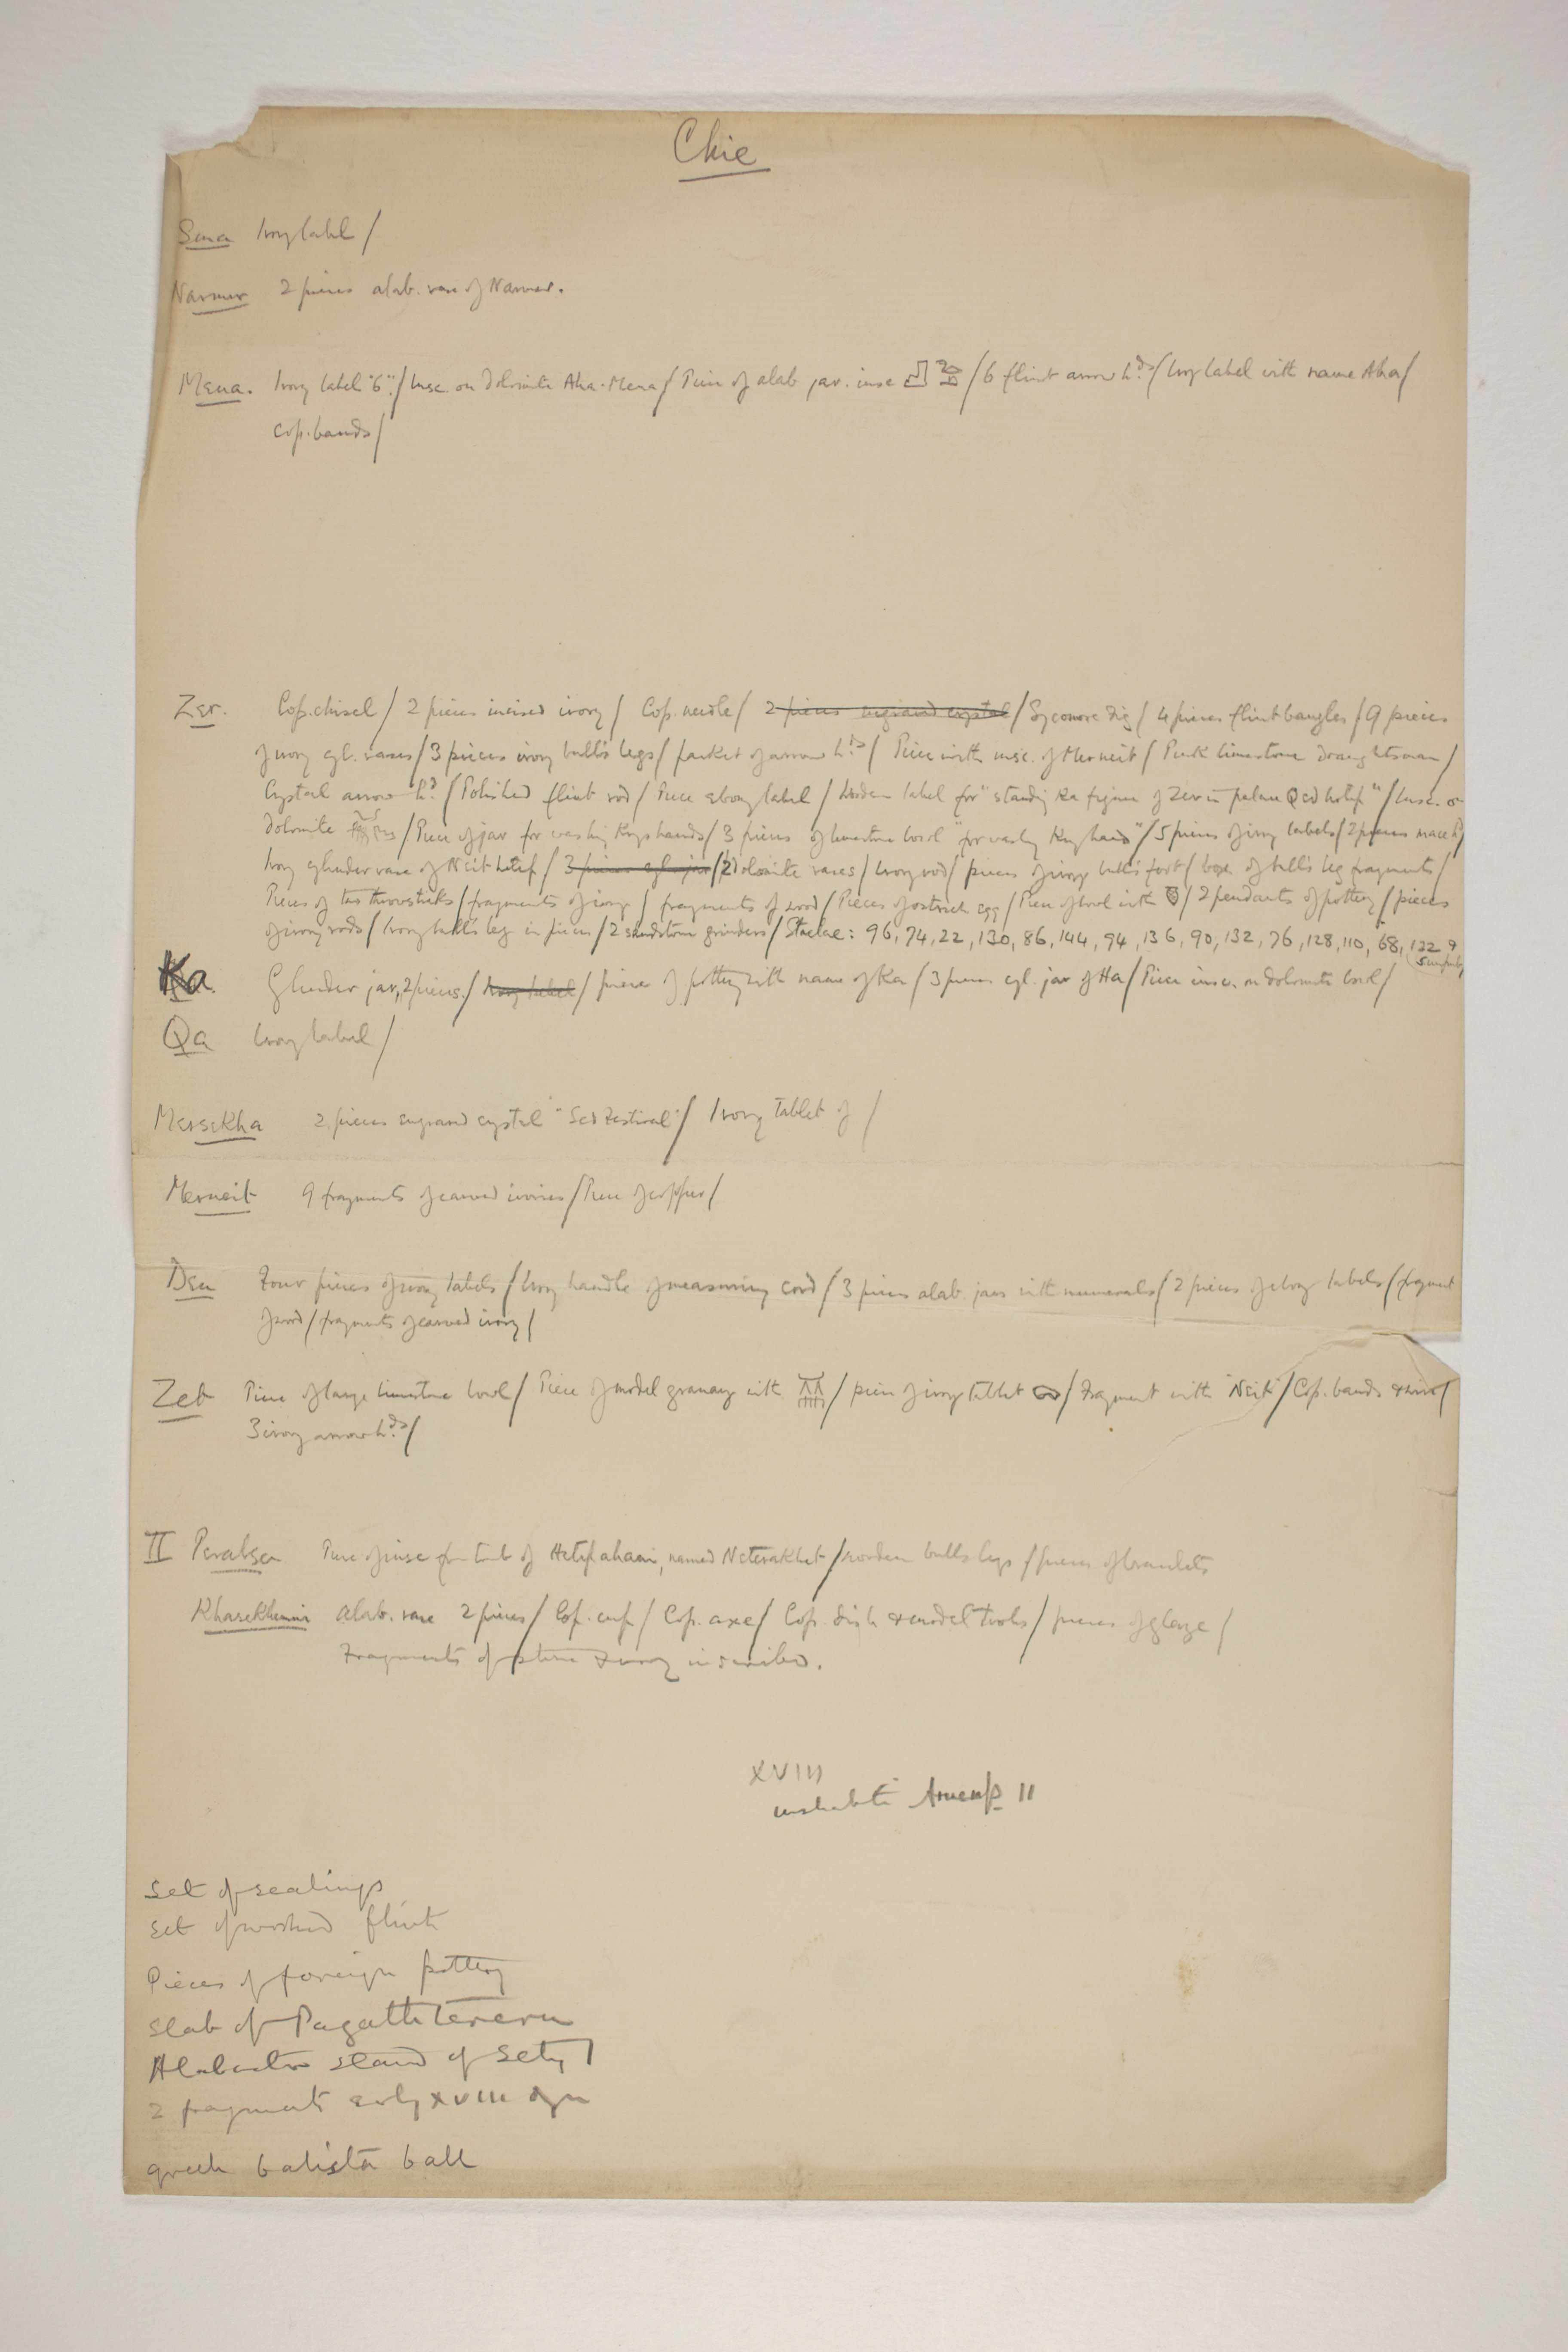 Chic
Sma Ivory label /
Narmer 2 pieces alab. vase of Narmer.
Mena. Ivory label "6". / Insc. on dolomite Aha-Mena / Piece of alab jar. insc / 6 flint arrow hds / Ivory label with name Aha /
Cop. bands /
Zer. Cop. chisel / 2 pieces incised ivory / Cop. needle / 2 pieces engraved crystal / Sycomore fig / 4 pieces flint bangles / 9 pieces
of ivory cyl. vases / 3 pieces ivory bull's legs / packet of arrow hds / Piece with insc. of Merneit / Pink limestone draughtsman /
Crystal arrow hd / Polished flint rod / Piece ebony label / Wooden label for "standing Ka figure of Zer in palace Qed hotep" / Insc. on
dolomite / Piece of jar for washing Kings hands / 3 pieces of limestone bowl "for washing Kings hands" / 5 pieces of ivory labels / 2 pieces mace hd /
Ivory cylinder vase of Neit hetep / 3 pieces cyl jar / 2 dolomite vases / Ivory rod / pieces of ivory bull's foot / box of bull's leg fragments /
Pieces of two throwsticks / fragments of ivory / fragments of wood / Pieces of ostrich egg / Piece of bowl with / 2 pendants of pottery / pieces
of ivory rods / Ivory bull's leg in pieces / 2 sandstone grinders / Staelae: 96, 74, 22, 130, 86, 144, 94, 136, 90, 132, 76, 128, 110, 68, 122 &
Ka. Cylinder jar, 2 pieces. / Ivory label / piece of pottery with name of Ka / 3 pieces cyl. jar of Ha / Piece insc. on dolomite bowl /
Qa Ivory label /
Mersekha 2 pieces engraved crystal "Sed Festival" / Ivory tablet of /
Merneit 9 fragments of carved ivories / Piece of copper /
Den Four pieces of ivory labels / Ivory handle of measuring cord / 3 pieces alab jars with numerals / 2 pieces of ebony labels / fragment
of wood / fragments of carved ivory /
Zet Piece of large limestone bowl / Piece of model granary with / piece of ivory tablet / Fragment with "Neit" / Cop. bands & wire /
3 ivory arrow hds /
II Perabsen Piece of insc from tomb of Hetepahani, named Neterakhet / wooden bulls legs / pieces of bracelets
Khasekhemui Alab. vase 2 pieces / Cop. cup / Cop. axe / Cop. dish & model tools / pieces of glaze /
Fragments of stone & ivory inscribed.
XVIII
ushabti Amenhp II
Set of sealings
Set of worked flint
Pieces of foreign pottery
Slab of
Alabaster stand of Sety I
2 fragments early XVIII dyn
greek balista ball